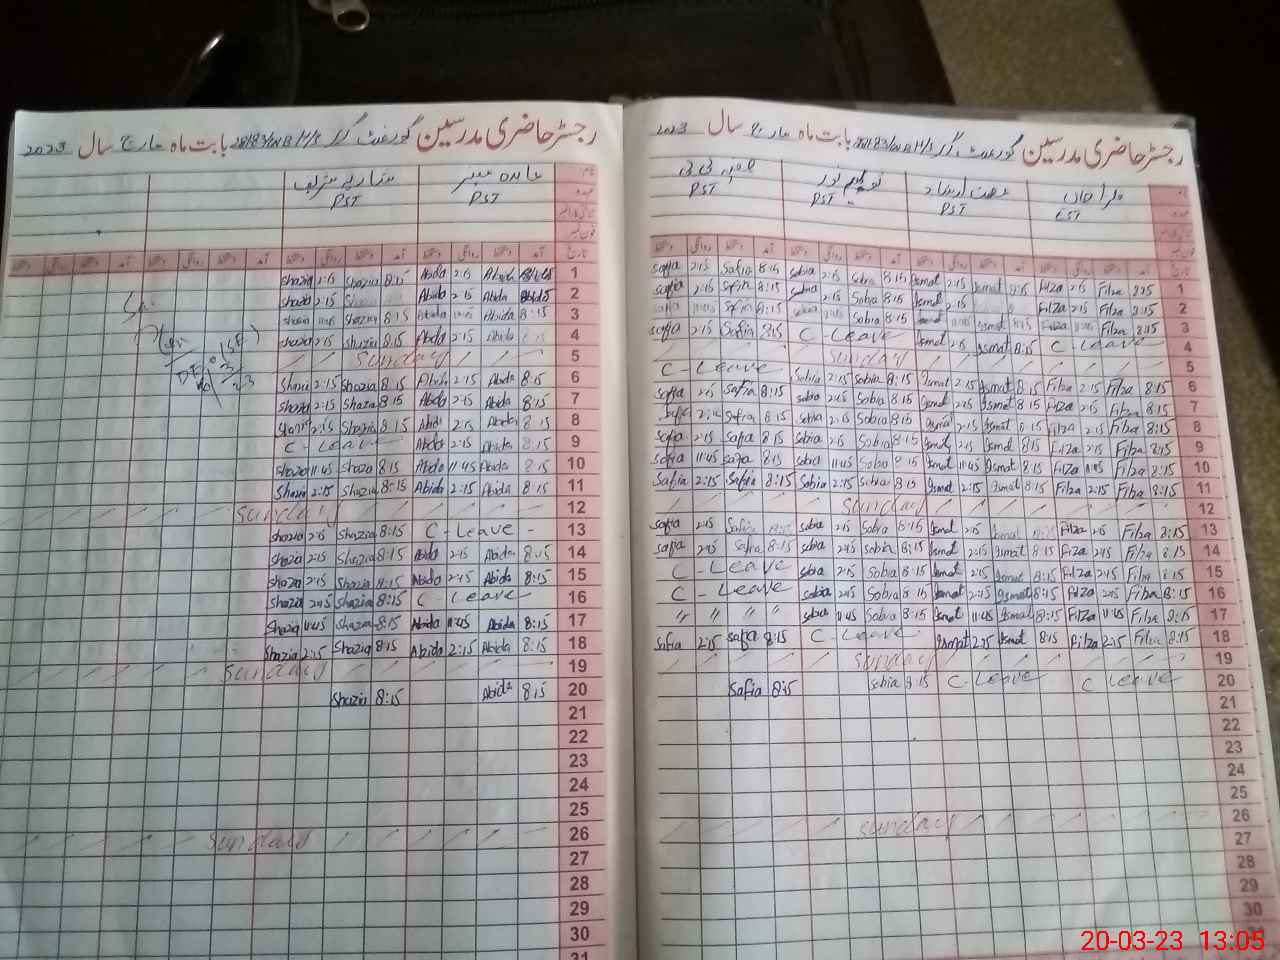 رجسٹر حاضری مدرسین گورنمنٹ گرلز بابت ماہ مارچ سال 2023
نام
PST PST
تاریخ
آمد دستخط روانگی دستخط آمد دستخط روانگی دستخط آمد دستخط روانگی دستخط آمد دستخط روانگی دستخط
Shazia 2:15 Shazia 8:15 Abida 2:15 Abida 1
Shazia 2:15 Abida 2:15 Abida 2
Shazia Shazia 8:15 Abida Abida 8:15 3
Shazia 2:15 Shazia 8:15 Abida 2:15 Abida 4
Sunday 5
Shazia 2:15 Shazia 8:15 Abida 2:15 Abida 8:15 6
Shazia 2:15 Shazia 8:15 Abida 2:15 Abida 8:15 7
Shazia 2:15 Shazia 8:15 Abida 2:15 Abida 8:15 8
C - Leave Abida 2:15 Abida 8:15 9
Shazia 11:45 Shazia 8:15 Abida 11:45 Abida 8:15 10
Shazia 2:15 Shazia 8:15 Abida 2:15 Abida 8:15 11
Sunday 12
Shazia 2:15 Shazia 8:15 C - Leave - 13
Shazia 2:15 Shazia 8:15 Abida 2:15 Abida 8:15 14
Shazia 2:15 Shazia 8:15 Abida 2:15 Abida 8:15 15
Shazia 2:15 Shazia 8:15 C - Leave 16
Shazia 11:45 Shazia 8:15 Abida 11:45 Abida 8:15 17
Shazia 2:15 Shazia 8:15 Abida 2:15 Abida 8:15 18
Sunday 19
Shazia 8:15 Abida 8:15 20
21
22
23
24
25
Sunday 26
27
28
29
30
31
رجسٹر حاضری مدرسین گورنمنٹ گرلز بابت ماہ مارچ سال 2023
نام
PST PST PST EST
تاریخ
آمد دستخط روانگی دستخط آمد دستخط روانگی دستخط آمد دستخط روانگی دستخط آمد دستخط روانگی دستخط
Safia 2:15 Safia 8:15 Sobia 2:15 Sobia 8:15 Ismat 2:15 Ismat 8:15 Filza 2:15 Filza 8:15 1
Safia 2:15 Safia 8:15 Sobia 2:15 Sobia 8:15 Ismat 2:15 Filza 2:15 Filza 8:15 2
Safia 8:15 Sobia 8:15 Ismat Ismat Filza Filza 8:15 3
Safia 2:15 Safia 8:15 C - Leave Ismat 2:15 Ismat 8:15 C - Leave 4
Sunday 5
C - Leave Sobia 2:15 Sobia 8:15 Ismat 2:15 Ismat 8:15 Filza 2:15 Filza 8:15 6
Safia 2:15 Safia 8:15 Sobia 2:15 Sobia 8:15 Ismat 2:15 Ismat 8:15 Filza 2:15 Filza 8:15 7
Safia Safia 8:15 Sobia 2:15 Sobia 8:15 Ismat 2:15 Ismat 8:15 Filza 2:15 Filza 8:15 8
Safia 2:15 Safia 8:15 Sobia 2:15 Sobia 8:15 Ismat 2:15 Ismat 8:15 Filza 2:15 Filza 8:15 9
Safia 11:45 Safia 8:15 Sobia 11:45 Sobia 8:15 Ismat 11:45 Ismat 8:15 Filza 11:45 Filza 8:15 10
Safia 2:15 Safia 8:15 Sobia 2:15 Sobia 8:15 Ismat 2:15 Ismat 8:15 Filza 2:15 Filza 8:15 11
Sunday 12
Safia 2:15 Safia Sobia 2:15 Sobia 8:15 Ismat 2:15 Ismat Filza 2:15 Filza 8:15 13
Safia 2:15 Safia 8:15 Sobia 2:15 Sobia 8:15 Ismat 2:15 Ismat 8:15 Filza 2:15 Filza 8:15 14
C - Leave Sobia 2:15 Sobia 8:15 Ismat 2:15 Ismat 8:15 Filza 2:15 Filza 8:15 15
C - Leave Sobia 2:15 Sobia 8:15 Ismat 2:15 Ismat 8:15 Filza 2:15 Filza 8:15 16
〃 〃 〃 〃 Sobia 11:45 Sobia 8:15 Ismat 11:45 Ismat 8:15 Filza 11:45 Filza 8:15 17
Safia 2:15 Safia 8:15 C - Leave Ismat 2:15 Ismat 8:15 Filza 2:15 Filza 8:15 18
Sunday 19
Safia 8:15 Sobia 8:15 C - Leave C Leave 20
21
22
23
24
25
Sunday 26
27
28
29
30
20-03-23 13:05